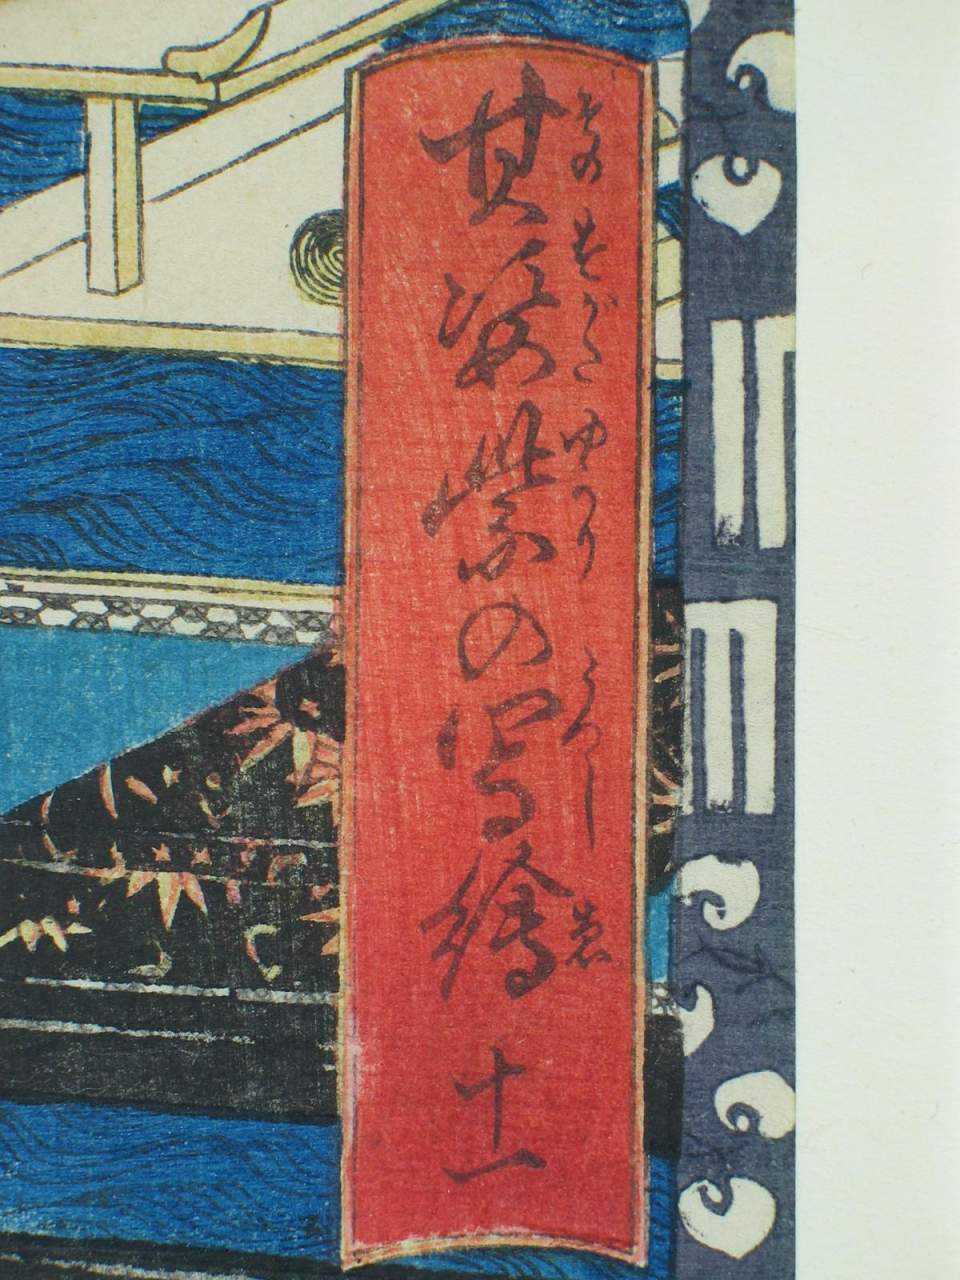 其姿紫の写繪 十一
そのすがたゆかりのうつしゑ